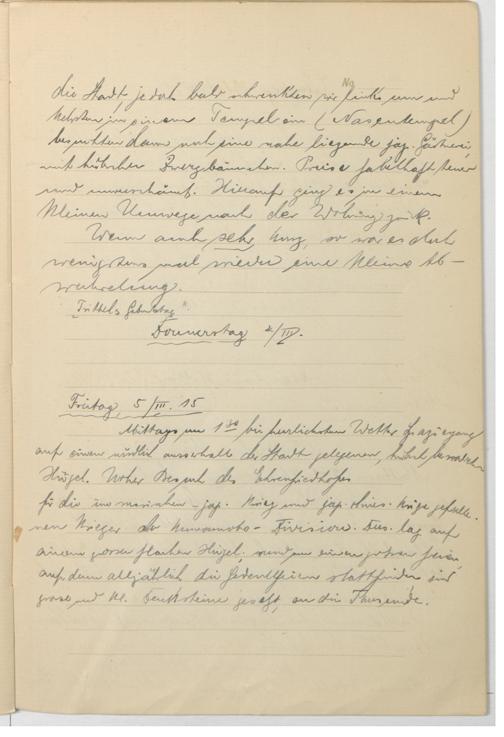 die Stadt, jedoch bald schwenkten wir links um und
kehrten in einem Tempel ein (Nasentempel)
besuchten dann noch eine nahe liegende jap. Gärtnerei
mit hübschen Zwergbäumchen. Preise fabelhaft teuer
und unverschämt. Hierauf ging es in einem
kleinen Umwege nach der Wohnung zurück.
Wenn auch sehr kurz, so war es doch
wenigstens mal wieder eine kleine Ab-
wechselung.
Geburtstag
Donnerstag 4/III.
Freitag, 5/III. 15
Mittags um 1 30 bei herrlichstem Wetter Spaziergang
auf einen nördlich ausserhalb der Stadt gelegenen,
Hügel. Vorher Besuch des Ehrenfriedhofes
für die im russischen-jap. Krieg und jap. chines. Kriege gefalle-
nen Krieger der Kumamoto-Division. Das. lag auf
einem grossen flachen Hügel, rund um einen grossen
auf dem alljährlich die Gedenkfeiern stattfinden sind
grose und kl. Denksteine gesetzt, an die Tausende.